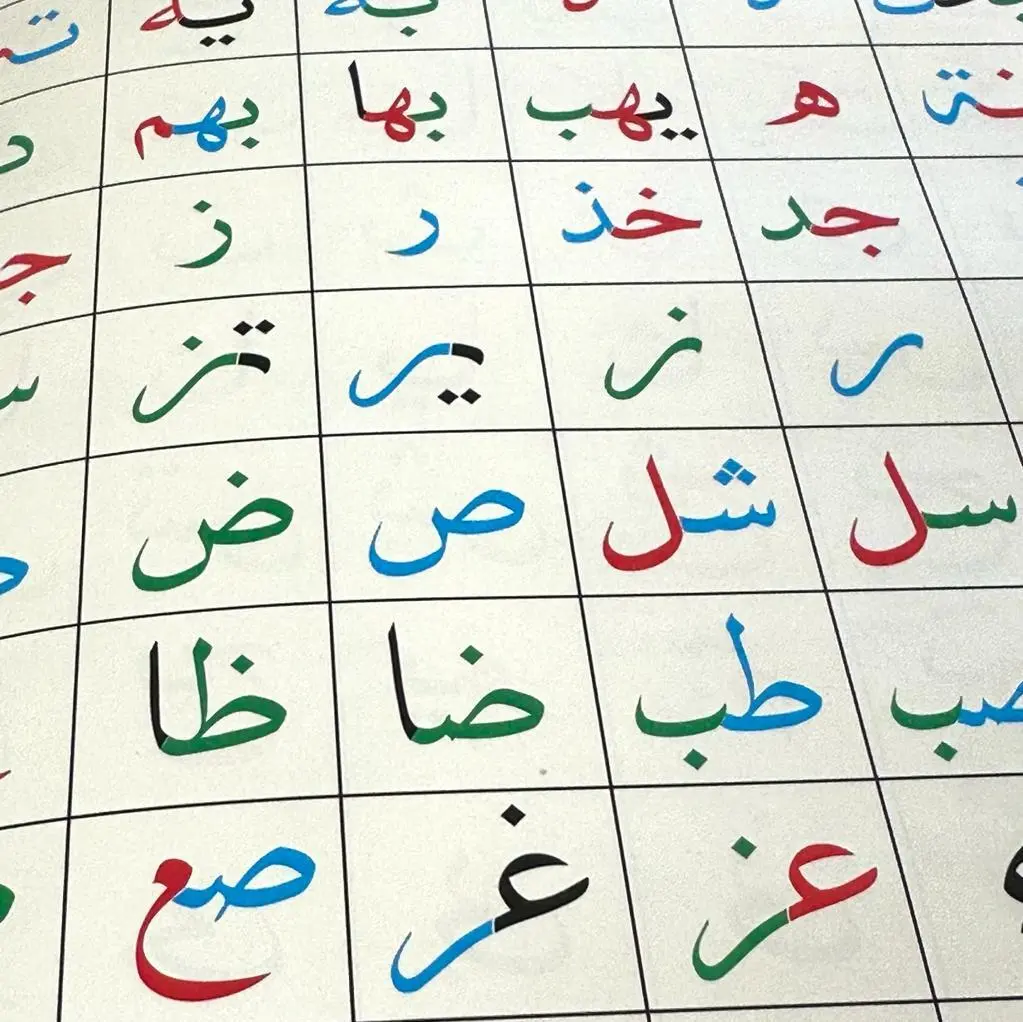 بها يهب ه نة
بهم
جد خذ ر ز
ر ز ير تز
سل شل ص ض
صب طب ضا ظا
عز غر صع